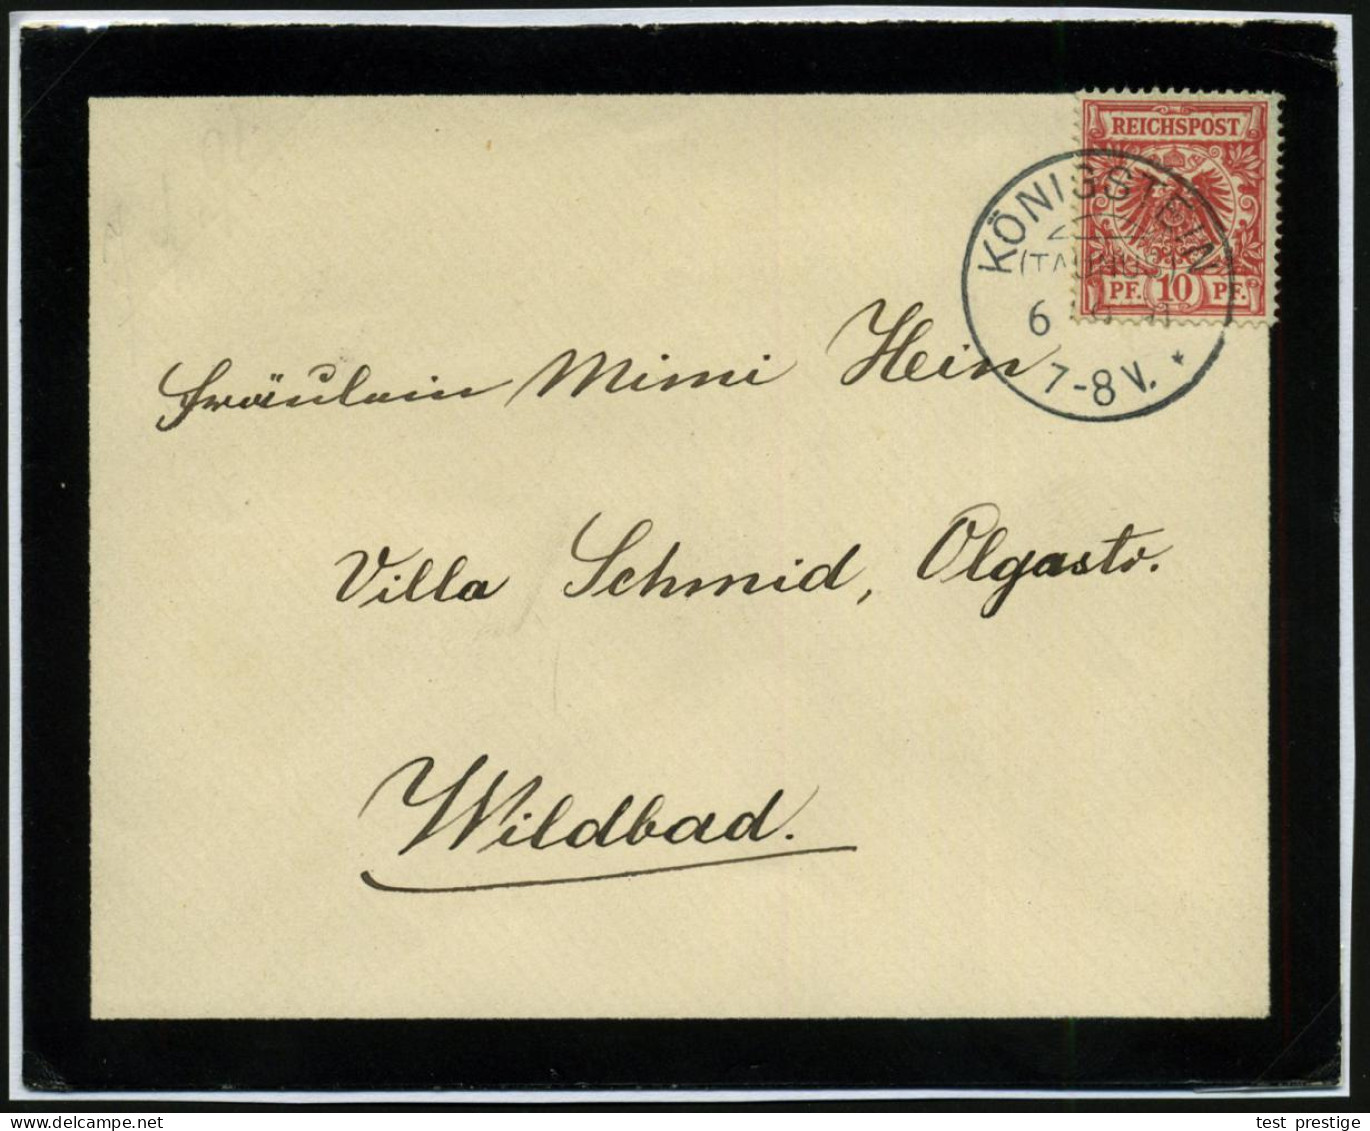 REICHSPOST
PF. 10 PF.
KÖNIGSTEIN
(TAUNUS)
6
7-8 V. *
Fräulein Mimi Hein
Villa Schmid, Olgastr.
Wildbad.
test prestige